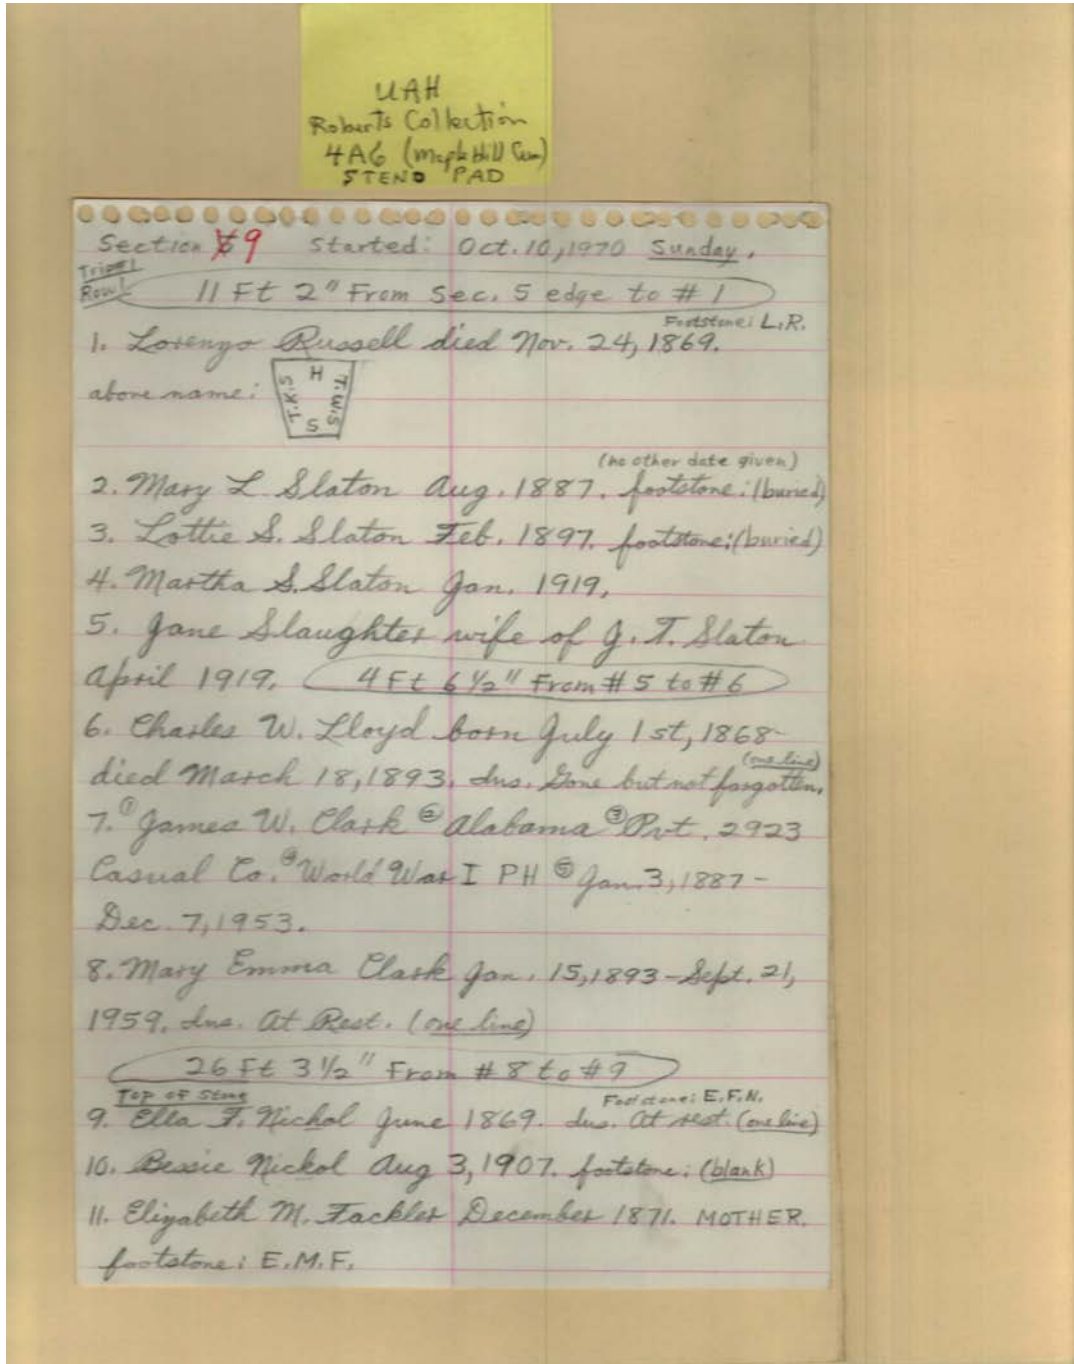 UAH
Roberts Collection
4A6 (Maple Hill Cem)
STENO PAD
Section 9 Started: Oct. 10, 1970 Sunday.
Trip 1
Row 1
11 Ft 2" From Sec. 5 edge to # 1
Footstone: L.R.
1. Lorenzo Russell died Nov. 24, 1869.
above name: H T.K.S T.W.S S
(no other date given)
2. Mary L. Slaton Aug. 1887. footstone: (buried)
3. Lottie S. Slaton Feb. 1897. footstone: (buried)
4. Martha S. Slaton Jan. 1919.
5. Jane Slaughter wife of J. T. Slaton
April 1919. 4 Ft 6 1/2" From # 5 to # 6
6. Charles W. Lloyd born July 1st, 1868-
(one line)
died March 18, 1893. Ins. Gone but not forgotten.
7. ① James W. Clark ② Alabama ③ Pvt. 2923
Casual Co. ④ World War I PH ⑤ Jan. 3, 1887 -
Dec. 7, 1953.
8. Mary Emma Clark Jan. 15, 1893 - Sept. 21,
1959. Ins. At Rest. (one line)
26 Ft 3 1/2" From # 8 to # 9
Top of Stone Footstone: E.F.N.
9. Ella F. Nichol June 1869. Ins. At rest. (one line)
10. Bessie Nickol Aug 3, 1907. footstone: (blank)
11. Elizabeth M. Fackler December 1871. MOTHER.
footstone: E.M.F.